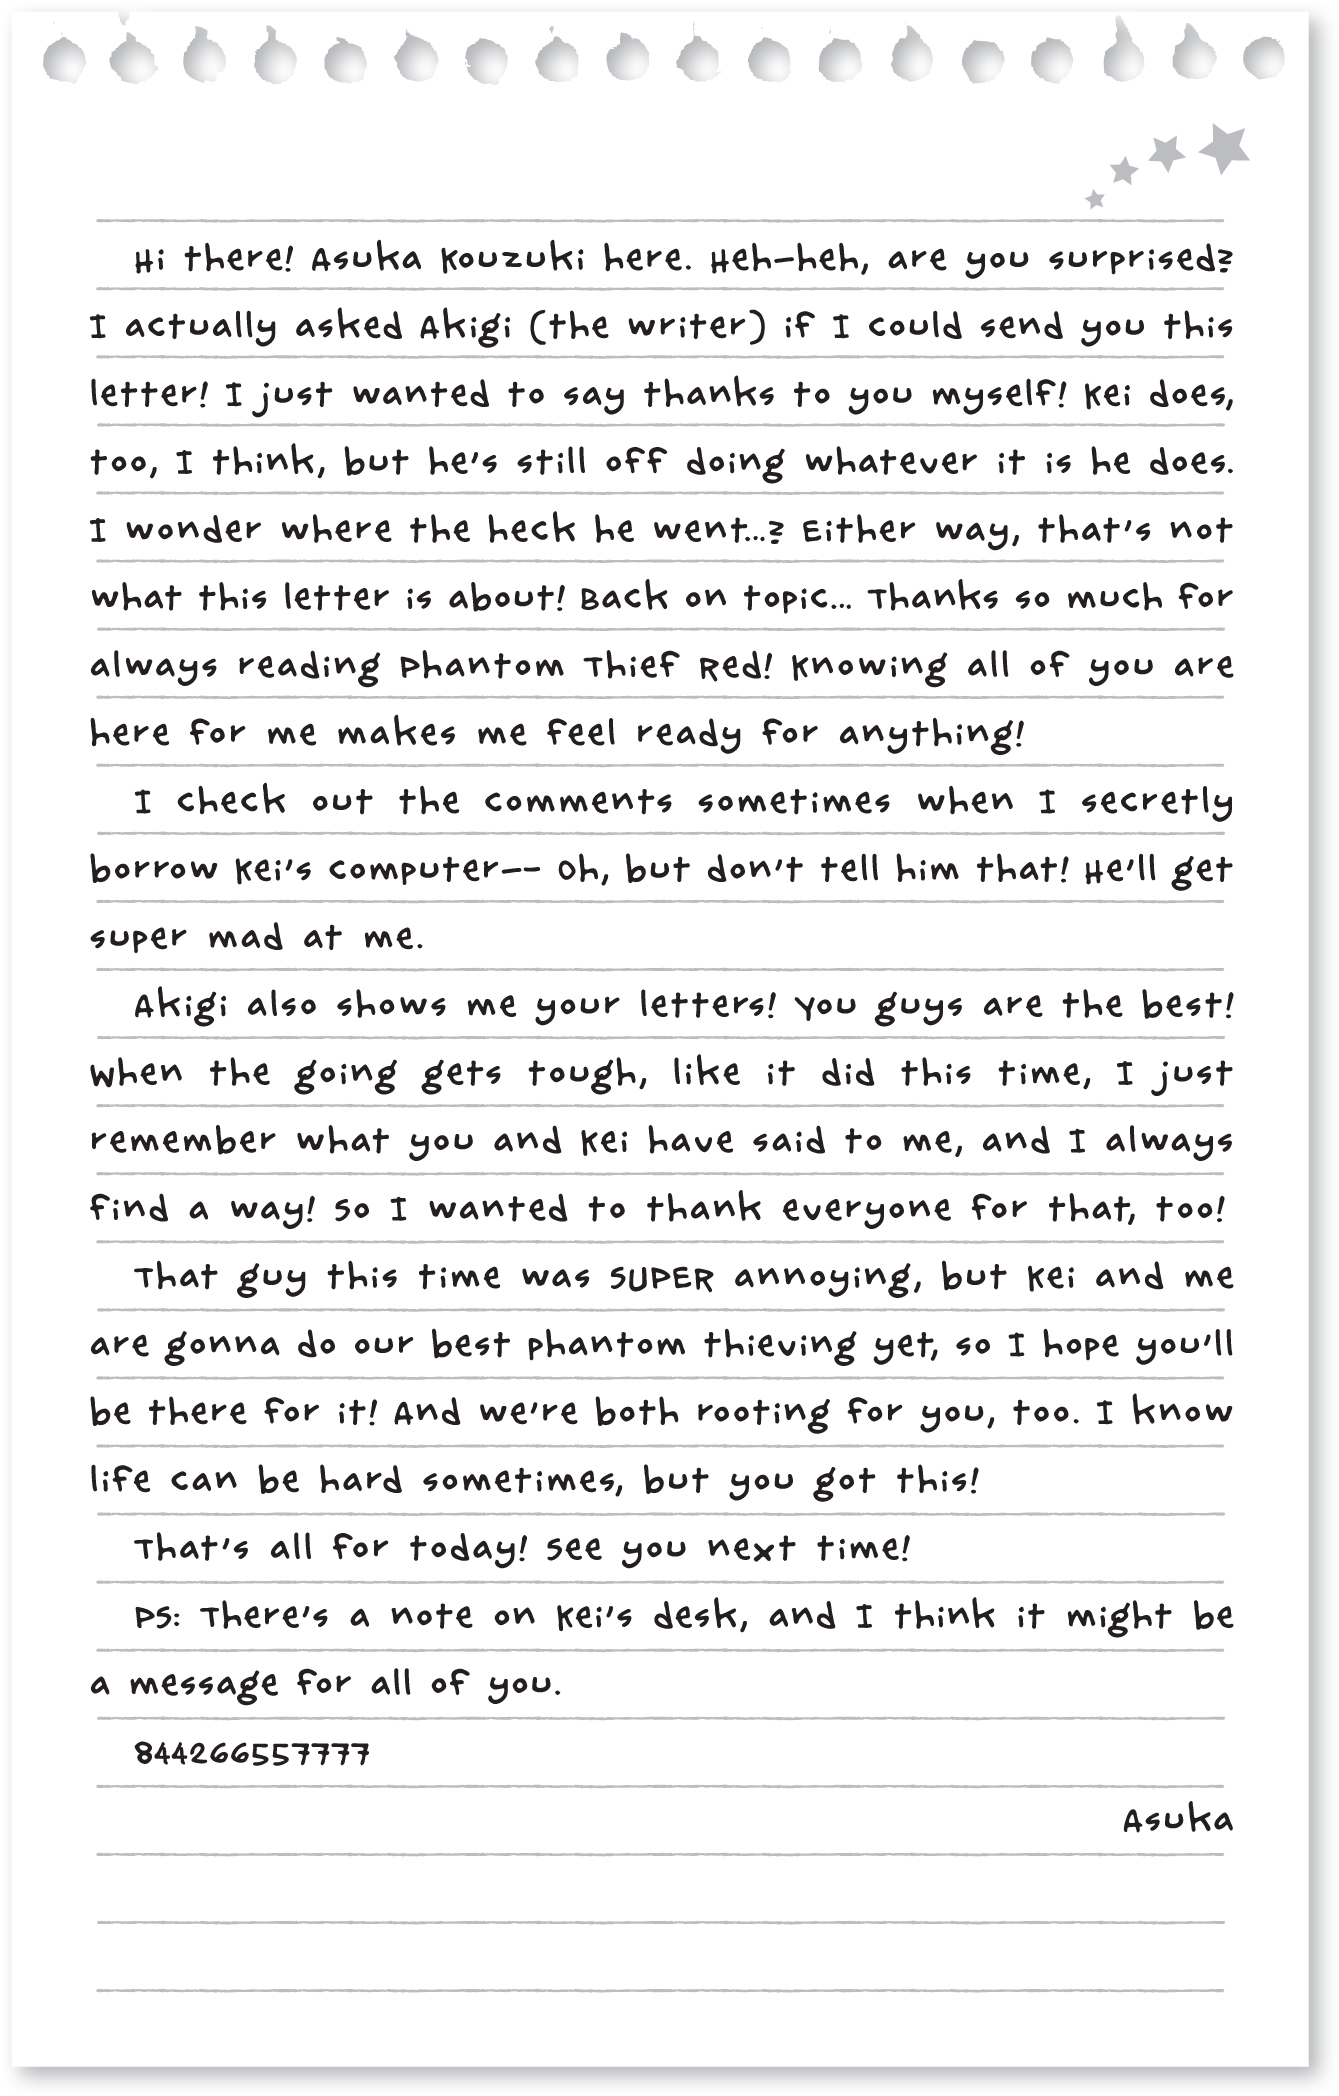 Hi there! Asuka Kouzuki here. Heh-heh, are you surprised?
I actually asked Akigi (the writer) if I could send you this
letter! I just wanted to say thanks to you myself! Kei does,
too, I think, but he's still off doing whatever it is he does.
I wonder where the heck he went...? Either way, that's not
what this letter is about! Back on topic... Thanks so much for
always reading Phantom Thief Red! Knowing all of you are
here for me makes me feel ready for anything!
I check out the comments sometimes when I secretly
borrow Kei's computer-- Oh, but don't tell him that! He'll get
super mad at me.
Akigi also shows me your letters! You guys are the best!
When the going gets tough, like it did this time, I just
remember what you and Kei have said to me, and I always
find a way! So I wanted to thank everyone for that, too!
That guy this time was SUPER annoying, but Kei and me
are gonna do our best phantom thieving yet, so I hope you'll
be there for it! And we're both rooting for you, too. I know
life can be hard sometimes, but you got this!
That's all for today! See you next time!
PS: There's a note on Kei's desk, and I think it might be
a message for all of you.
844266557777
Asuka